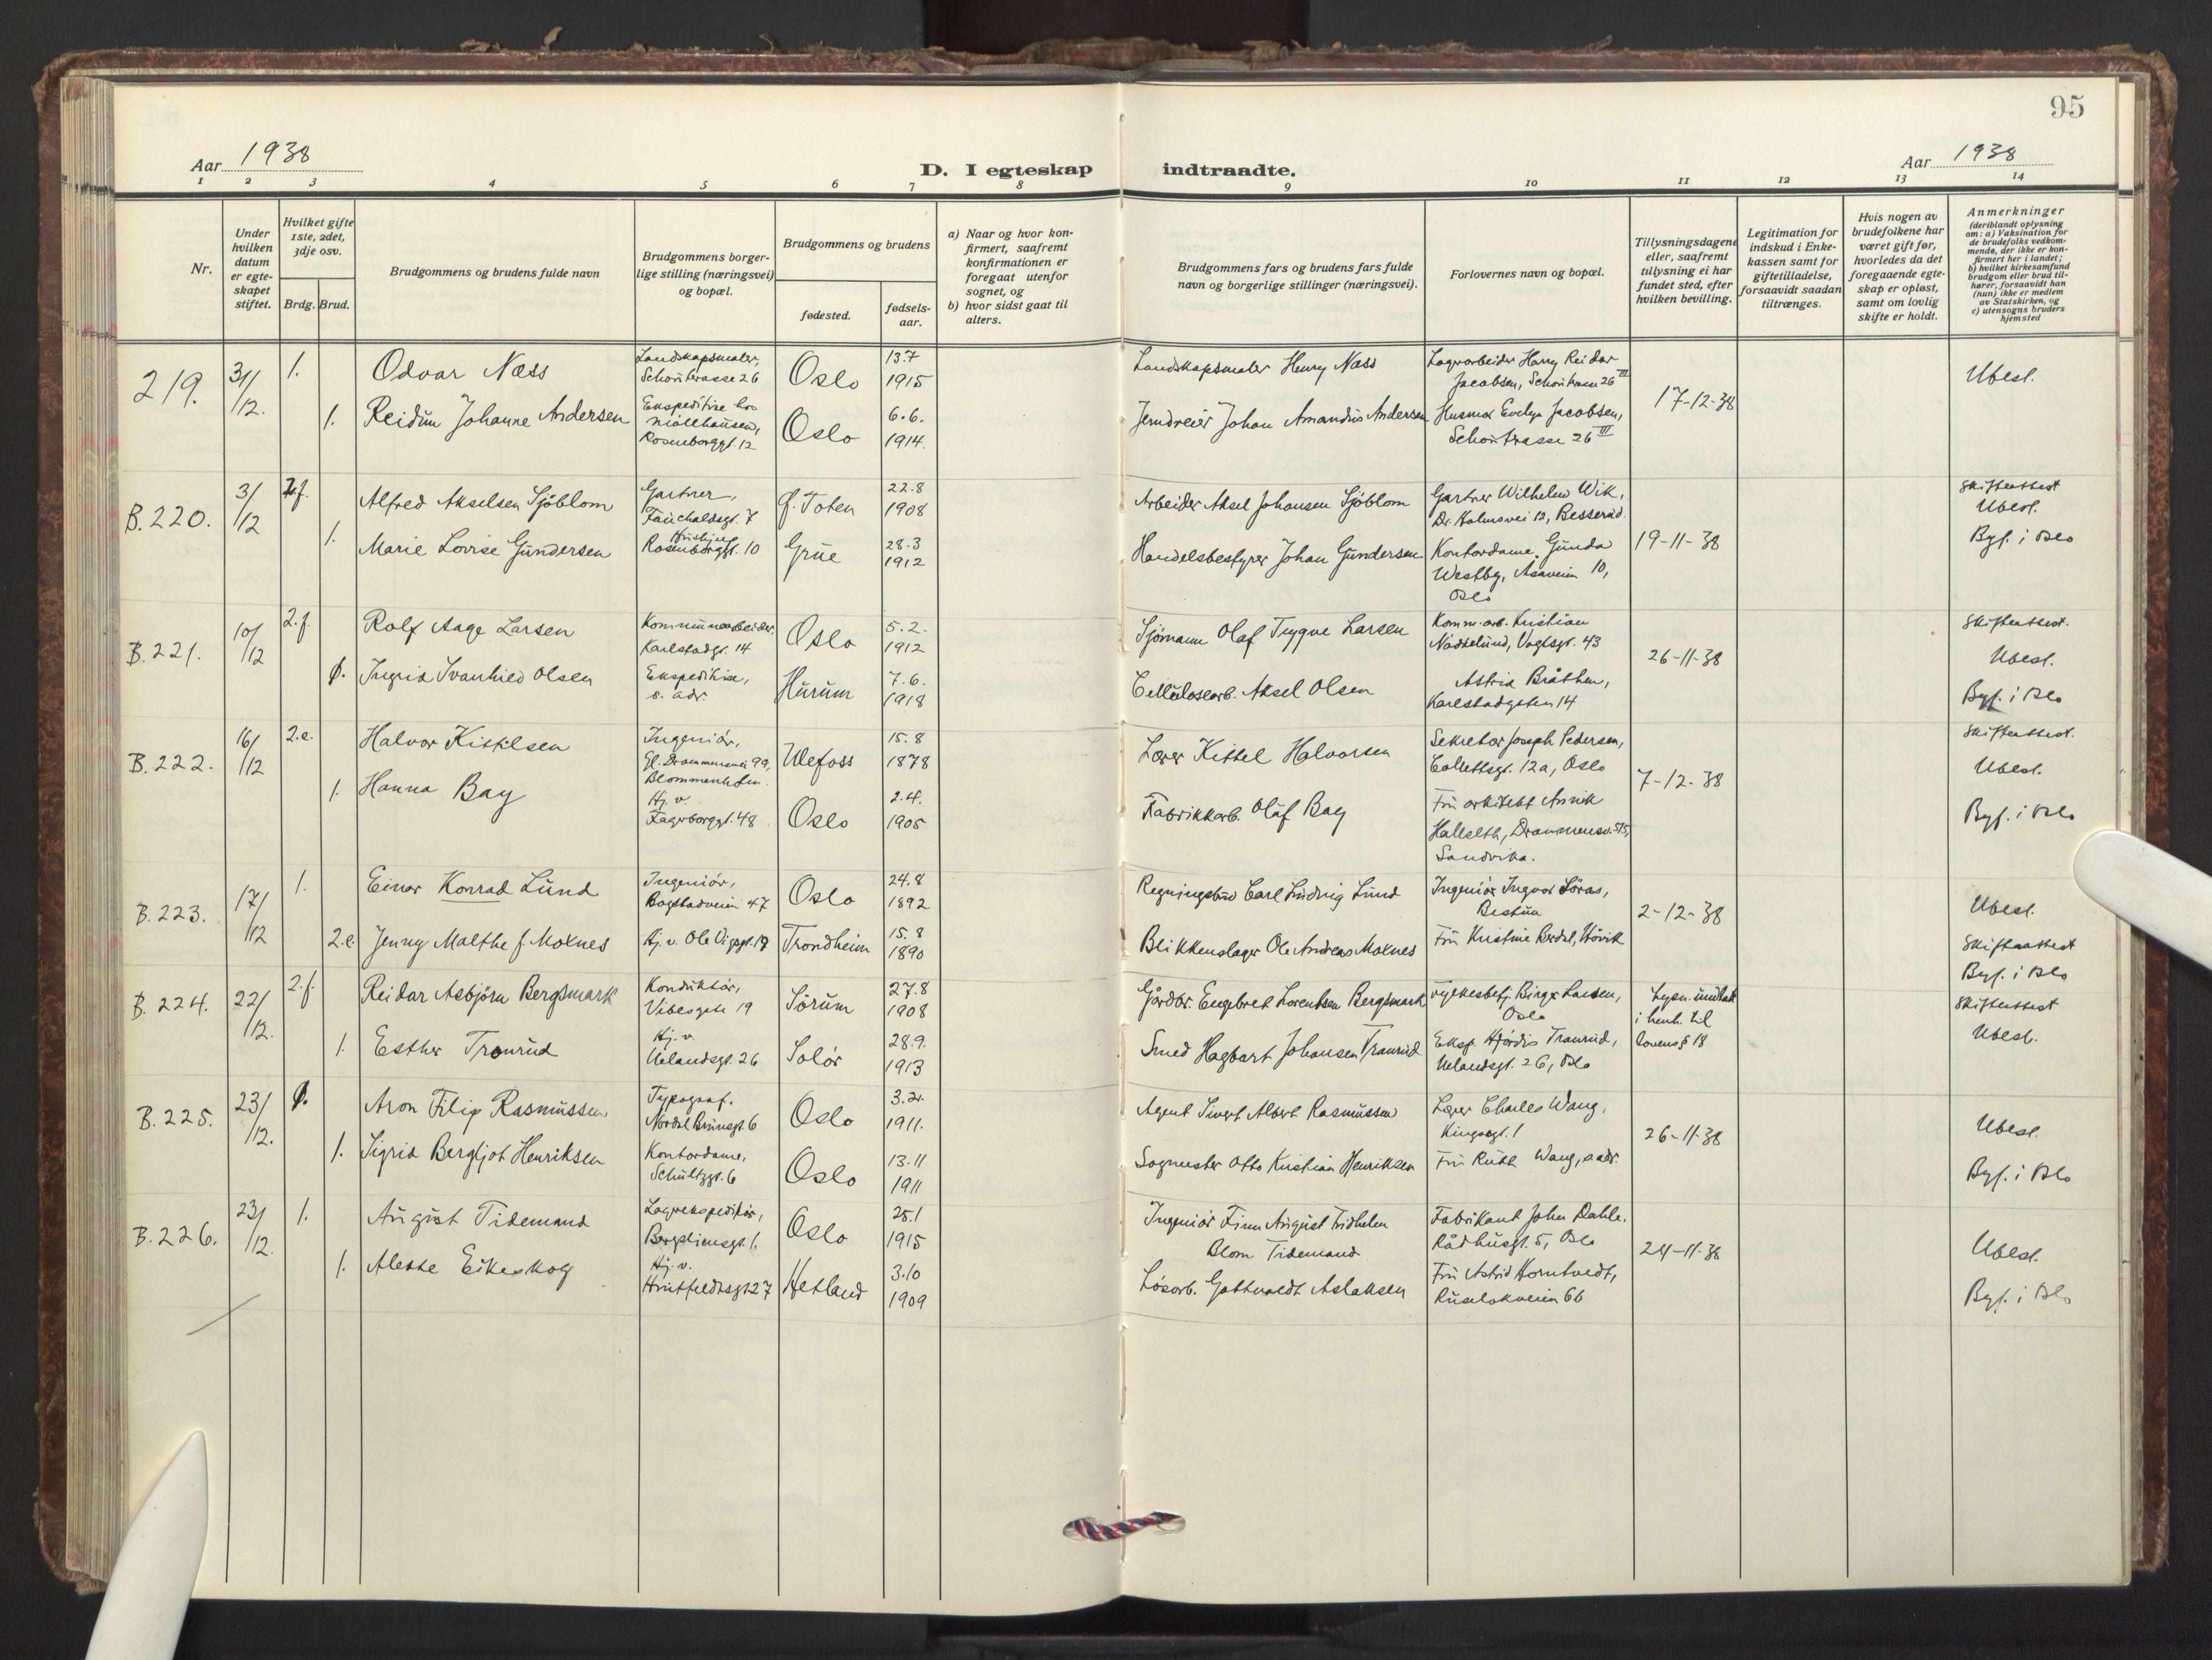 95
Aar 1938
D. I egteskap indtraadte.
Aar 1938
1 2 3 4 5 6 7 8 9 10 11 12 13 14
Nr.
Under hvilken datum er egte-skapet stiftet.
Hvilket gifte 1ste, 2det, 3dje osv.
Brdg. Brud.
Brudgommens og brudens fulde navn
Brudgommens borger-lige stilling (næringsvei) og bopæl.
Brudgommens og brudens
fødested.
fødsels-aar.
a) Naar og hvor kon-firmert, saafremt konfirmationen er foregaat utenfor sognet, og
b) hvor sidst gaat til alters.
Brudgommens fars og brudens fars fulde navn og borgerlige stillinger (næringsvei).
Forlovernes navn og bopæl.
Tillysningsdagene eller, saafremt tillysning ei har fundet sted, efter hvilken bevilling.
Legitimation for indskud i Enke-kassen samt for giftetilladelse, forsaavidt saadan tiltrænges.
Hvis nogen av brudefolkene har været gift før, hvorledes da det foregaaende egte-skap er opløst, samt om lovlig skifte er holdt.
Anmerkninger
(deriblandt oplysning om: a) Vaksination for de brudefolks vedkom-mende, der ikke er kon-firmert her i landet; b) hvilket kirkesamfund brudgom eller brud til-hører, forsaavidt han (hun) ikke er medlem av Statskirken, og c) utensogns bruders hjemsted
219. 3/12. 1. Odvar Næss
Landskapsmaler,
Schouterrasse 26
Oslo
13.7
1915
Landskapsmaler Henry Næss
Lagerarbeider Harry Reidar
Jacobsen, Schouterrasse 26 III
17-12-38
Ubesl.
1. Reidun Johanne Andersen
Ekspeditrise hos
Rosenborggt. 12
Oslo
6.6.
1914.
Jerndreier Johan Amandus Andersen
Husmor Evelyn Jacobsen,
Schouterrasse 26 III
B. 220. 3/12 2.f. Alfred Akselsen Sjöblom
Gartner,
Fauchaldsgt. 7
Ø. Toten
22.8
1908
Arbeider Aksel Johansen Sjöblom
Gartner Wilhelm Wik,
Dr. Holmsvei 12, Besserud.
19-11-38
Skifteattest
Ubesl.
Byf. i Oslo
1. Marie Lovise Gundersen
Rosenborggt. 10
Grue
28.3
1912
Handelsbestyrer Johan Gundersen
Kontordame Gunda
Westby, Asaveien 10,
Oslo
B. 221. 10/12 2.f. Rolf Aage Larsen
Kommunearbeider,
Karlstadgt. 14
Oslo
5.2.
1912
Sjömann Olaf Trygve Larsen
Komm.arb. Kristian
Nadselund, Vogtsgt. 43
26-11-38
Skifteattest.
Ubesl.
Byf. i Oslo
Ingrid Ivanhild Olsen
Ekspeditrise,
s. adr.
Hurum
7.6.
1918
Cellulosearb. Aksel Olsen
Astrid Bråthen,
Karlstadgaten 14
B. 222. 16/12 2.e. Halvor Kittilsen
Ingeniör,
Gl. Drammensvei 99,
Blommenholm.
Ulefoss
15.8
1878
Lærer Kittel Halvorsen
Sekretær Joseph Pedersen,
Collettsgt. 12a, Oslo
7-12-38
Skifteattest.
Ubesl.
Byf. i Oslo
1. Hanna Bay
Hj. v.
Fagerborggt. 48
Oslo
2.4.
1905
Fabrikkarb. Olaf Bay
Fru arkitekt Annik
Halseth, Drammensv. 575,
Sandvika.
B. 223. 17/12 1. Einar Konrad Lund
Ingeniör,
Bogstadveien 47
Oslo
24.8
1892
Regningsbud Carl Ludvig Lund
Ingeniör Ingvar Söraas,
Bestum
2-12-38
Ubesl.
Skifteattest
Byf. i Oslo
2.e. Jenny Malthe f. Moxnes
Hj. v. Ole Vigsgt. 19
Trondheim
15.8
1890
Blikkenslager Ole Andreas Moxnes
Fru Kristine Berdal, Hövik
B. 224. 22/12. 2.f. Reidar Asbjörn Bergsmark
Konduktör,
Vibesgate 19
Sörum
27.8
1908
Gårdbr. Engebret Lorentsen Bergsmark
Yrkesbetj. Birger Larsen,
Oslo
Lysn. undlatt
i henh. til
lovens § 18
Skifteattest
Ubesl.
1. Esther Tronrud
Hj. v.
Uelandsgt. 26
Solör
28.9.
1913
Smed Hagbart Johansen Tranrud
Eksp. Hjördis Tranrud,
Uelandsgt. 26, Oslo
B. 225. 23/12. Aron Filip Rasmussen
Typograf.
Nordal Brunsgt. 6
Oslo
3.2.
1911.
Agent Sivert Albert Rasmussen
Lærer Charles Wang,
Kingosgt. 1
26-11-38
Ubesl.
Byf. i Oslo
1. Sigrid Bergljot Henriksen
Kontordame,
Schultzgt. 6
Oslo
13.11
1911
Sagmester Otto Kristian Henriksen
Fru Ruth Wang, s. adr.
B. 226. 23/12. 1. August Tidemand
Lagerekspeditör,
Bergsliensgt. 1.
Oslo
25.1
1915
Ingeniör Finn August Fridhelm
Blom Tidemand
Fabrikant John Dahle.
Rådhusgt. 5, Oslo
24-11-38
Ubesl.
Byf. i Oslo
1. Aleste Eikeskog
Hj. v.
Huitfeldtsgt 27
Hetland
3.10
1909
Lösarb. Gotthardt Aslaksen
Fru Astrid Horntvedt,
Ruselökveien 66